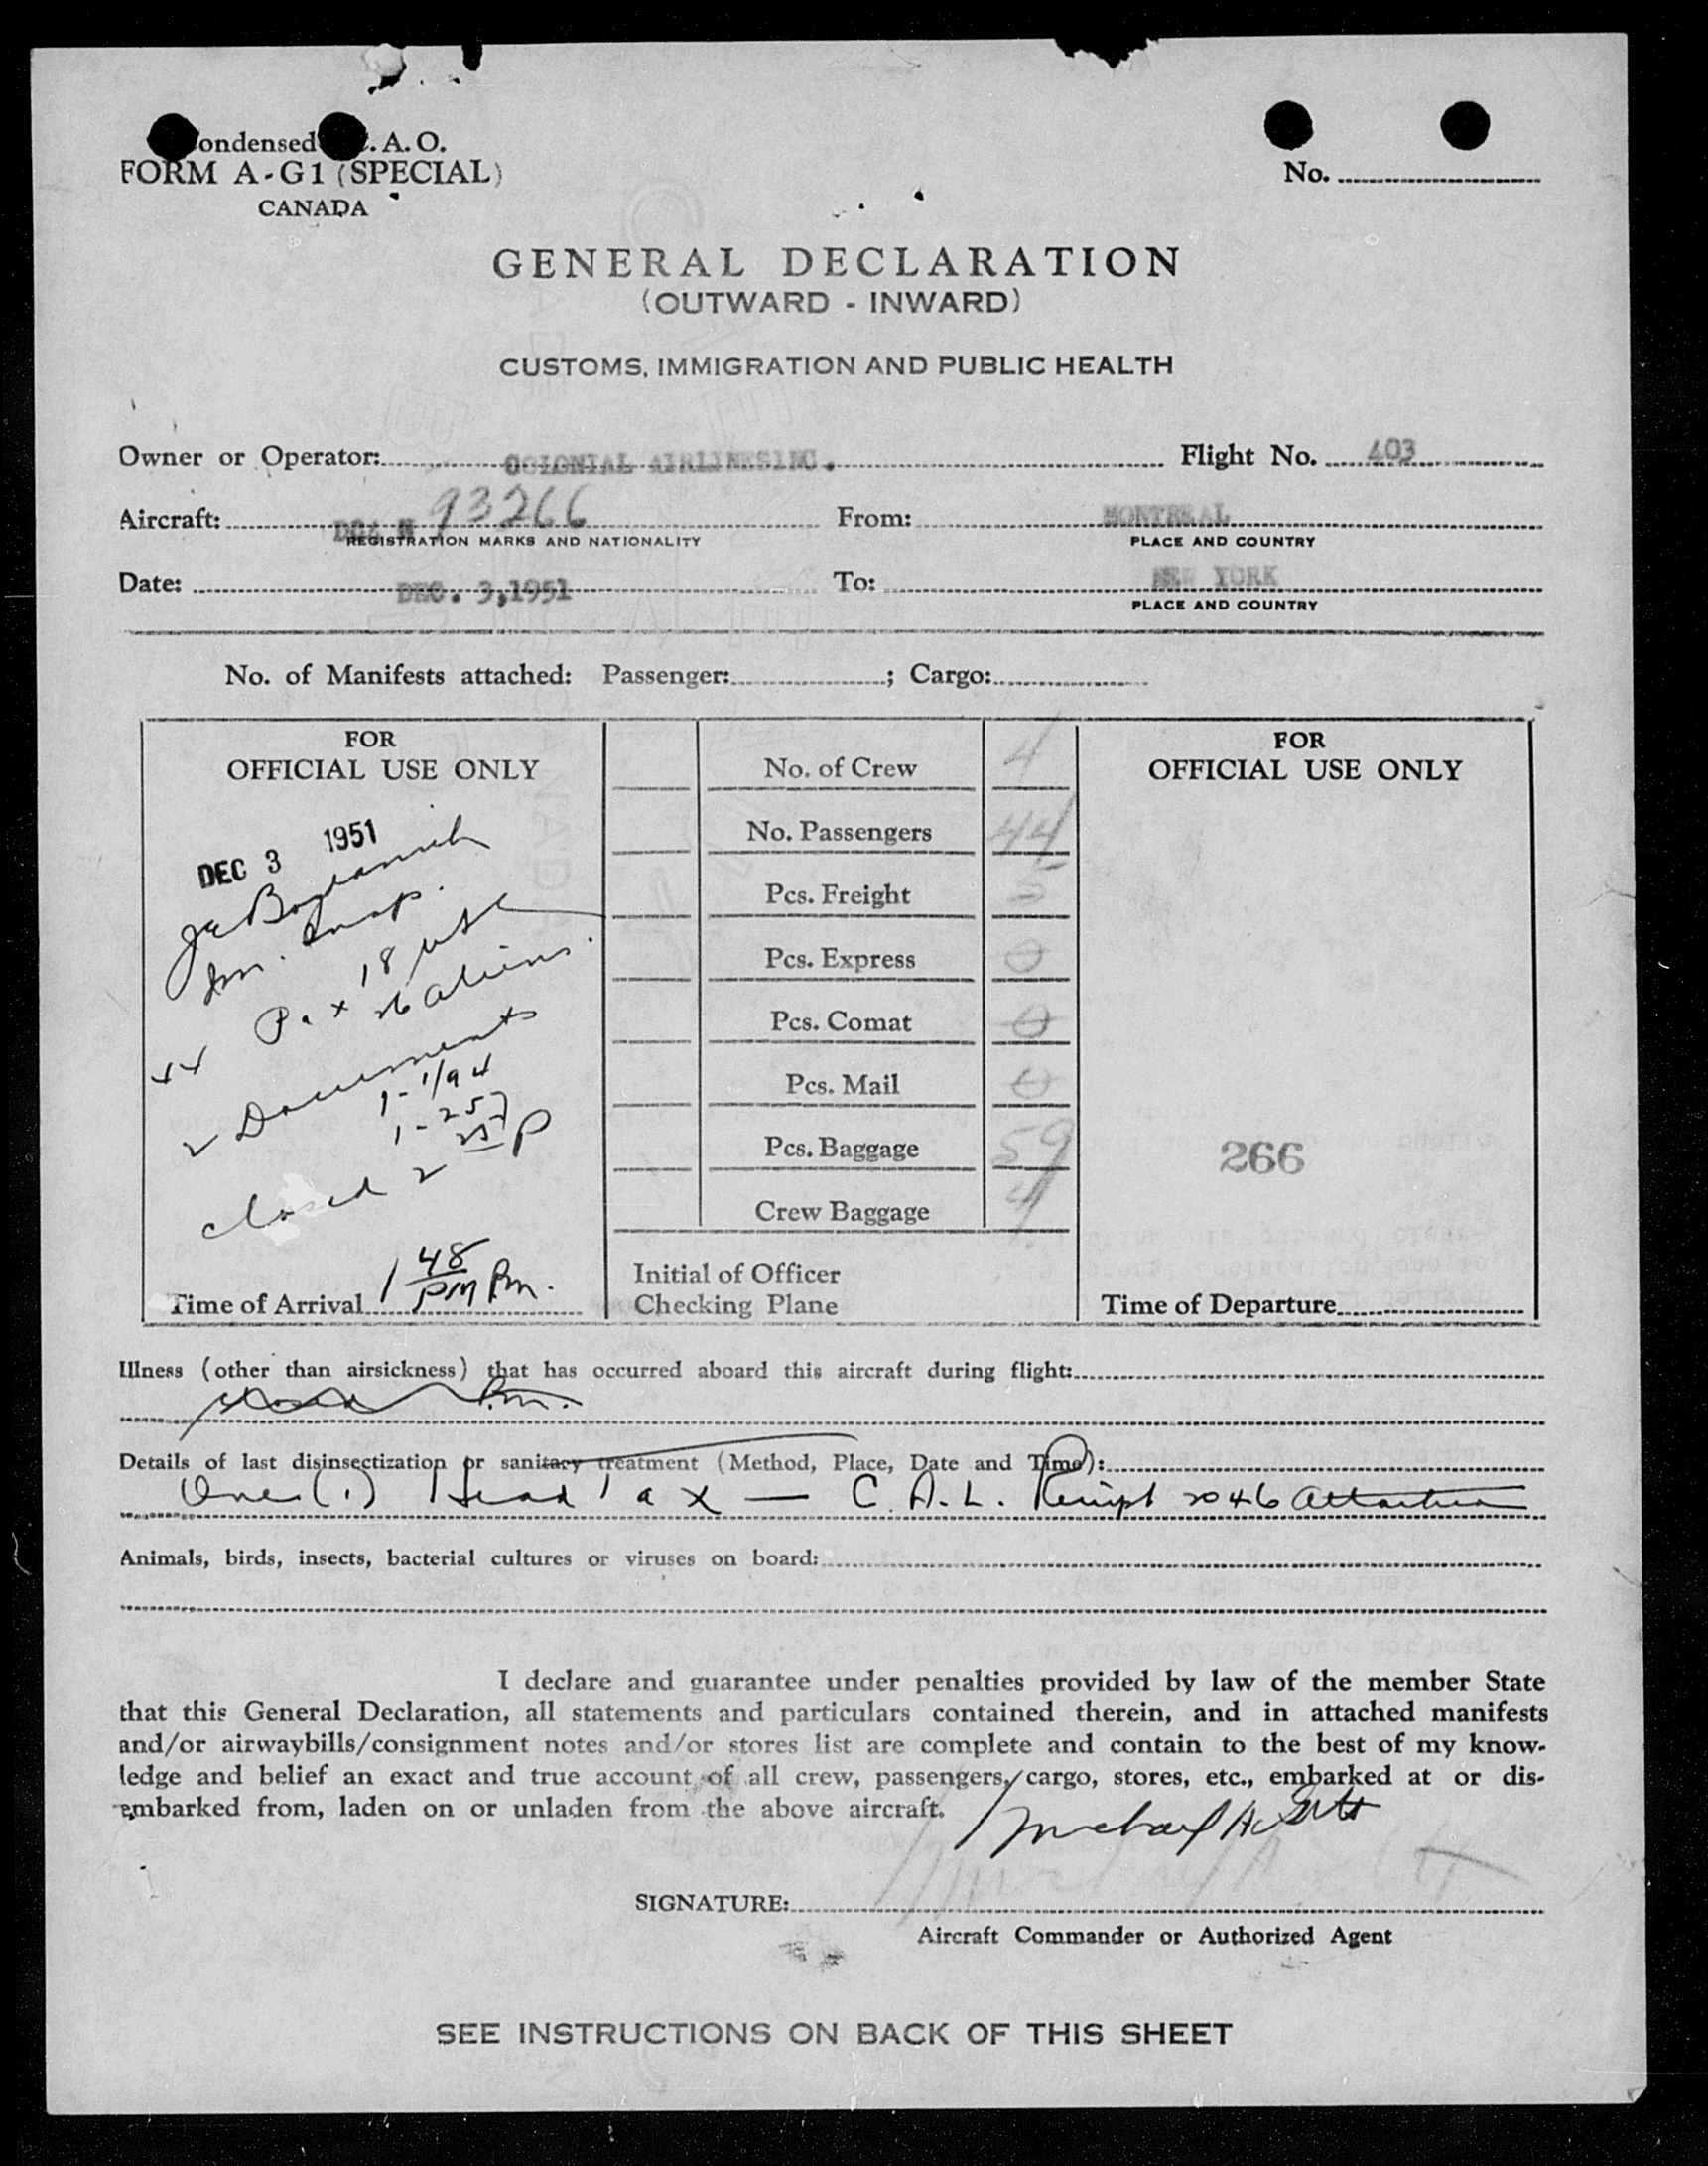 ondensed . A. O.
FORM A-G1 (SPECIAL)
CANADA
No.
GENERAL DECLARATION
(OUTWARD - INWARD)
CUSTOMS, IMMIGRATION AND PUBLIC HEALTH
Owner or Operator: COLONIAL AIRLINESINC. Flight No. 403
Aircraft: DC4 N 93266 From: MONTREAL
REGISTRATION MARKS AND NATIONALITY PLACE AND COUNTRY
Date: DEC. 3,1951 To: NEW YORK
PLACE AND COUNTRY
No. of Manifests attached: Passenger: ; Cargo:
FOR
OFFICIAL USE ONLY
DEC 3 1951
Imm. Insp.
44 Pax 18 USC
26 Aliens.
2 Documents
1-I/94
1-257
closed 2 25 P
Time of Arrival 1 48 PM Pm.
No. of Crew 4
No. Passengers 44
Pcs. Freight
Pcs. Express 0
Pcs. Comat 0
Pcs. Mail 0
Pcs. Baggage 59
Crew Baggage 4
Initial of Officer
Checking Plane
FOR
OFFICIAL USE ONLY
266
Time of Departure
Illness (other than airsickness) that has occurred aboard this aircraft during flight:
P.m.
Details of last disinsectization or sanitary treatment (Method, Place, Date and Time):
One (1) Head Tax — C.A.L. Receipt 2046 attached
Animals, birds, insects, bacterial cultures or viruses on board:
I declare and guarantee under penalties provided by law of the member State
that this General Declaration, all statements and particulars contained therein, and in attached manifests
and/or airwaybills/consignment notes and/or stores list are complete and contain to the best of my know-
ledge and belief an exact and true account of all crew, passengers, cargo, stores, etc., embarked at or dis-
embarked from, laden on or unladen from the above aircraft.
Michael A
SIGNATURE:
Aircraft Commander or Authorized Agent
SEE INSTRUCTIONS ON BACK OF THIS SHEET